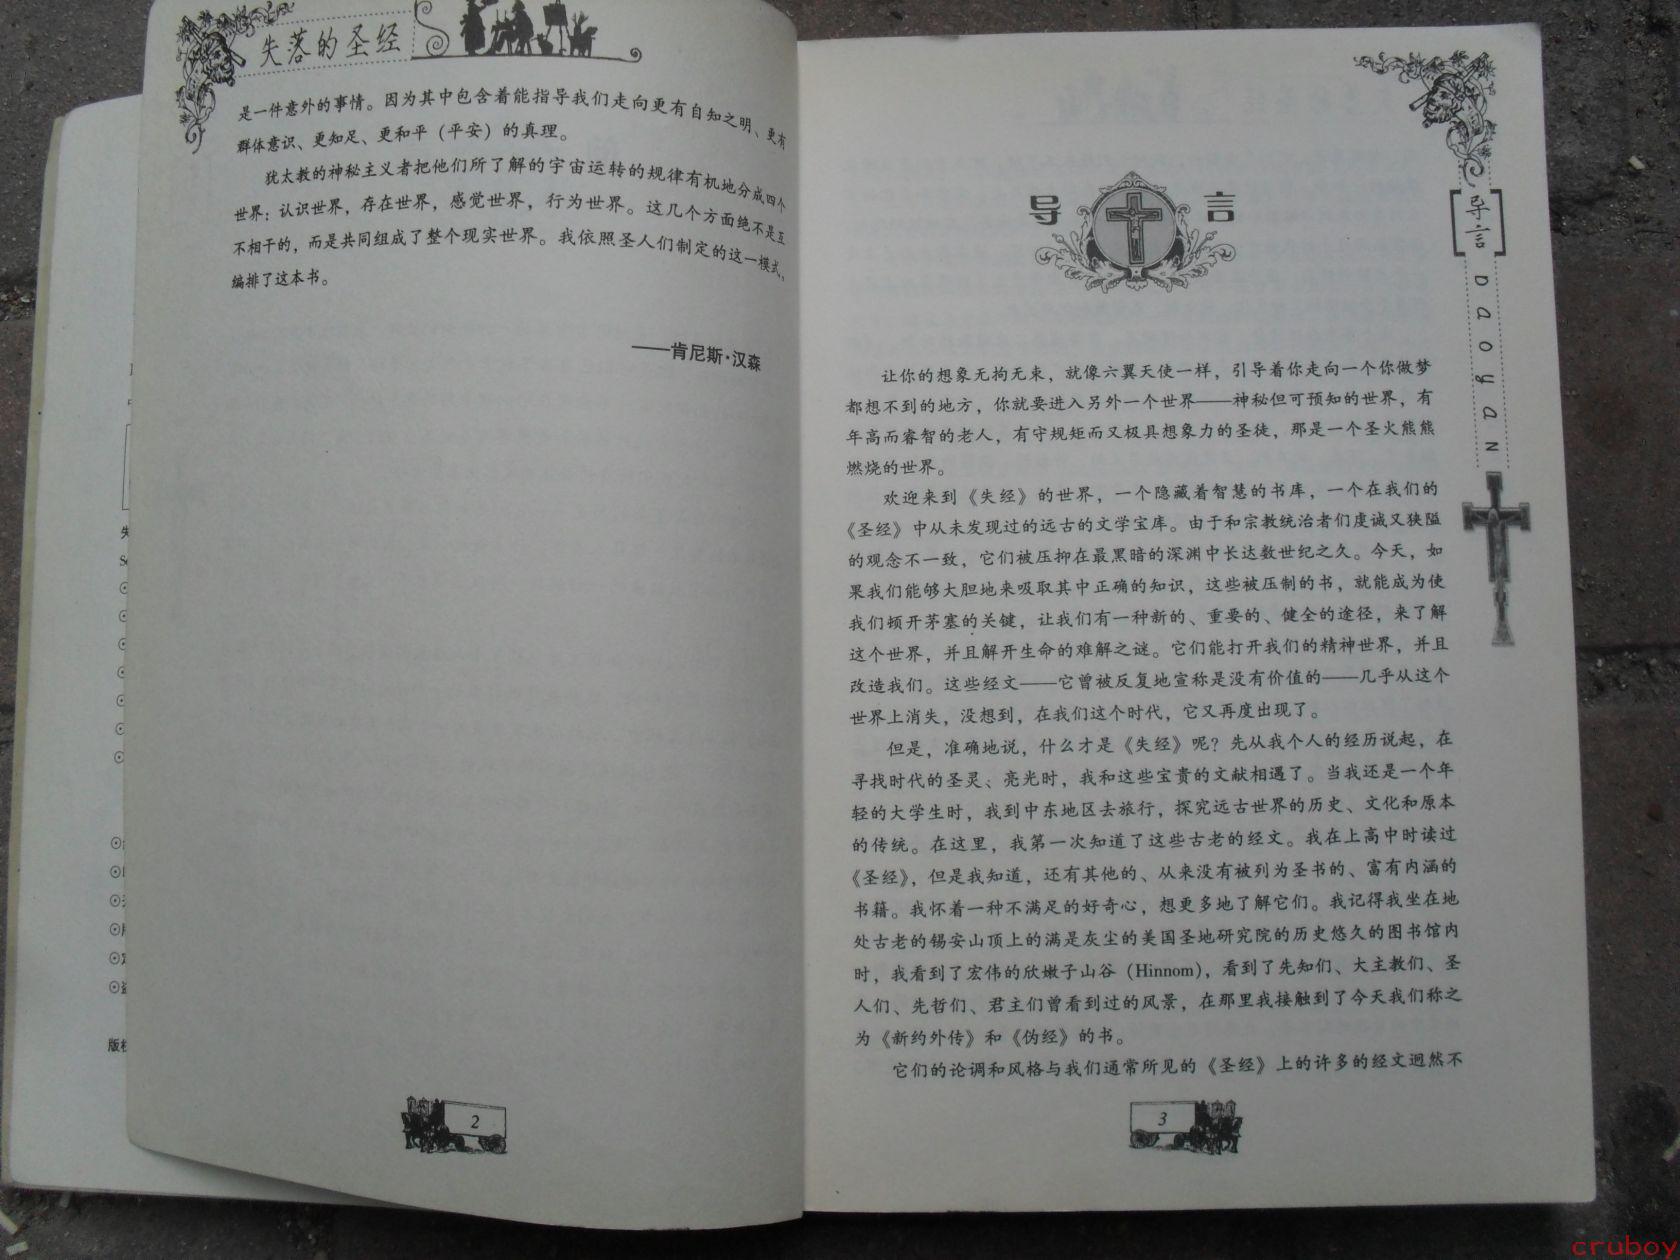 失落的圣经
是一件意外的事情。因为其中包含着能指导我们走向更有自知之明、更有
群体意识、更知足、更和平（平安）的真理。
犹太教的神秘主义者把他们所了解的宇宙运转的规律有机地分成四个
世界：认识世界，存在世界，感觉世界，行为世界。这几个方面绝不是互
不相干的，而是共同组成了整个现实世界。我依照圣人们制定的这一模式，
编排了这本书。
——肯尼斯·汉森
2
导言
导言
DaoyaN
让你的想象无拘无束，就像六翼天使一样，引导着你走向一个你做梦
都想不到的地方，你就要进入另外一个世界——神秘但可预知的世界，有
年高而睿智的老人，有守规矩而又极具想象力的圣徒，那是一个圣火熊熊
燃烧的世界。
欢迎来到《失经》的世界，一个隐藏着智慧的书库，一个在我们的
《圣经》中从未发现过的远古的文学宝库。由于和宗教统治者们虔诚又狭隘
的观念不一致，它们被压抑在最黑暗的深渊中长达数世纪之久。今天，如
果我们能够大胆地来吸取其中正确的知识，这些被压制的书，就能成为使
我们顿开茅塞的关键，让我们有一种新的、重要的、健全的途径，来了解
这个世界，并且解开生命的难解之谜。它们能打开我们的精神世界，并且
改造我们。这些经文——它曾被反复地宣称是没有价值的——几乎从这个
世界上消失，没想到，在我们这个时代，它又再度出现了。
但是，准确地说，什么才是《失经》呢？先从我个人的经历说起，在
寻找时代的圣灵、亮光时，我和这些宝贵的文献相遇了。当我还是一个年
轻的大学生时，我到中东地区去旅行，探究远古世界的历史、文化和原本
的传统。在这里，我第一次知道了这些古老的经文。我在上高中时读过
《圣经》，但是我知道，还有其他的、从来没有被列为圣书的、富有内涵的
书籍。我怀着一种不满足的好奇心，想更多地了解它们。我记得我坐在地
处古老的锡安山顶上的满是灰尘的美国圣地研究院的历史悠久的图书馆内
时，我看到了宏伟的欣嫩子山谷（Hinnom），看到了先知们、大主教们、圣
人们、先哲们、君主们曾看到过的风景，在那里我接触到了今天我们称之
为《新约外传》和《伪经》的书。
它们的论调和风格与我们通常所见的《圣经》上的许多的经文迥然不
3
cruboy